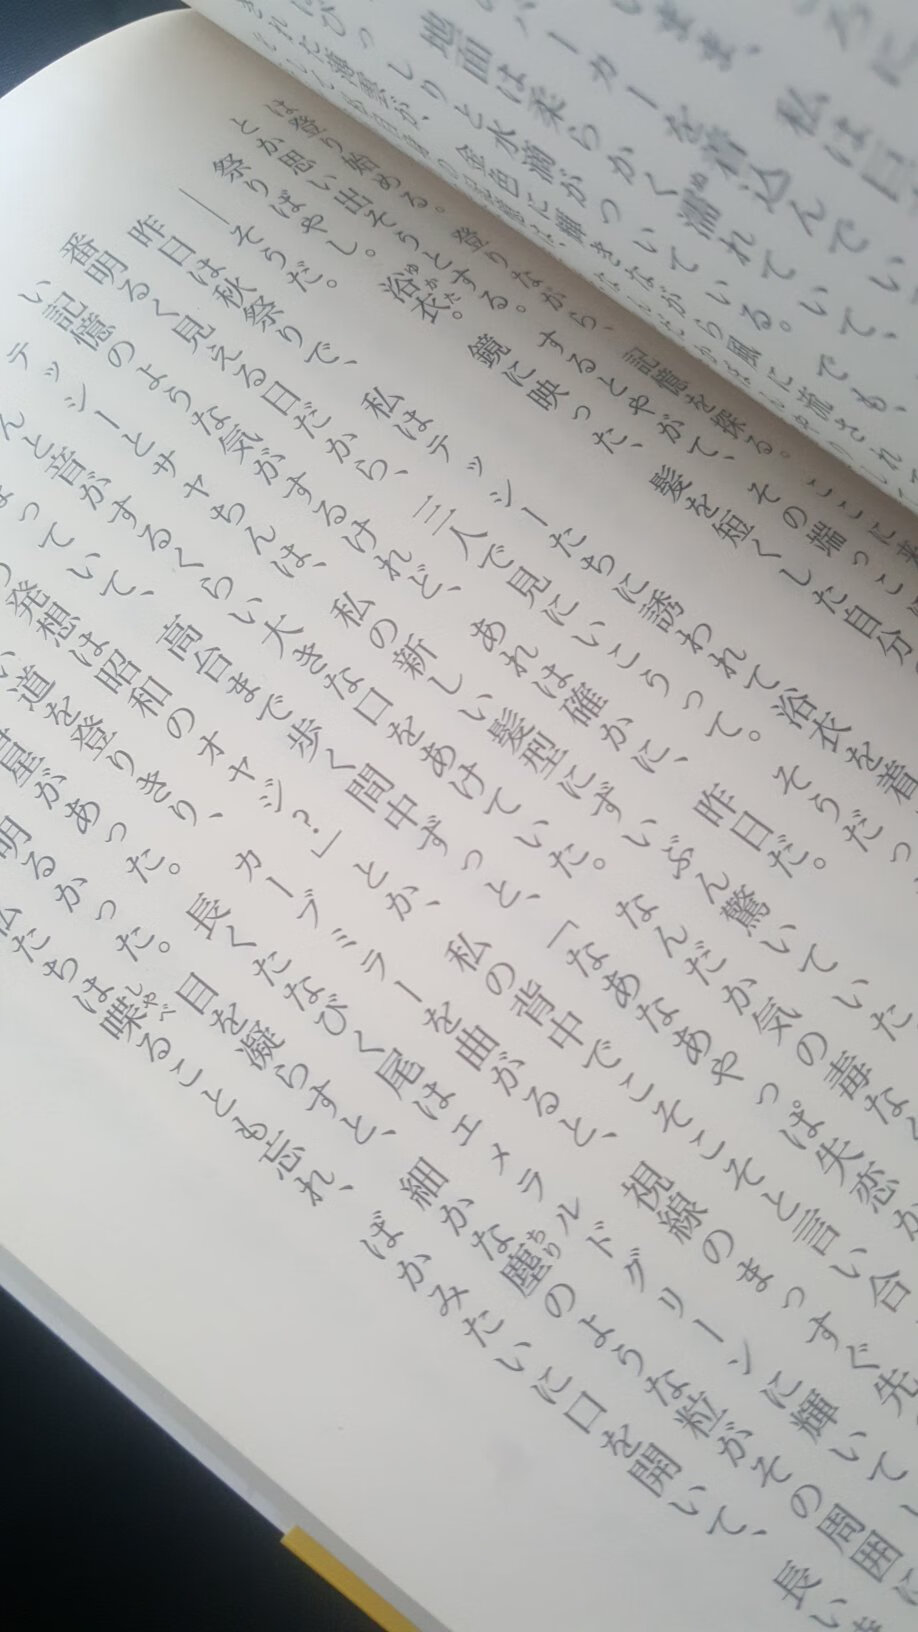 ろに
いまま、私は目
パーカーを着込んでい
地面は柔らかく濡れていて、でも、
にびっしりと水滴がついている。
金色に輝きながら風に流され
は登り始める。登りながら、記憶を探る。ここに来
とか思い出そうとする。するとやがて、その端っこに
祭りばやし。浴衣。鏡に映った、髪を短くした自分
――そうだ。
昨日は秋祭りで、私はテッシーたちに誘われて浴衣を着
番明るく見える日だから、三人で見にいこうって。そうだっ
い記憶のような気がするけれど、あれは確かに、昨日だ。
テッシーとサヤちんは、私の新しい髪型にずいぶん驚いていた
んと音がするくらい大きな口をあけていた。なんだか気の毒なく
まっていて、高台まで歩く間中ずっと、「なあなあやっぱ失恋か
発想は昭和のオヤジ?」とか、私の背中でこそこそと言い合
い道を登りきり、カーブミラーを曲がると、視線のまっすぐ先
彗星があった。長くたなびく尾はエメラルドグリーンに輝いて
明るかった。目を凝らすと、細かな塵のような粒がその周囲に
私たちは喋ることも忘れ、ばかみたいに口を開いて、長いま